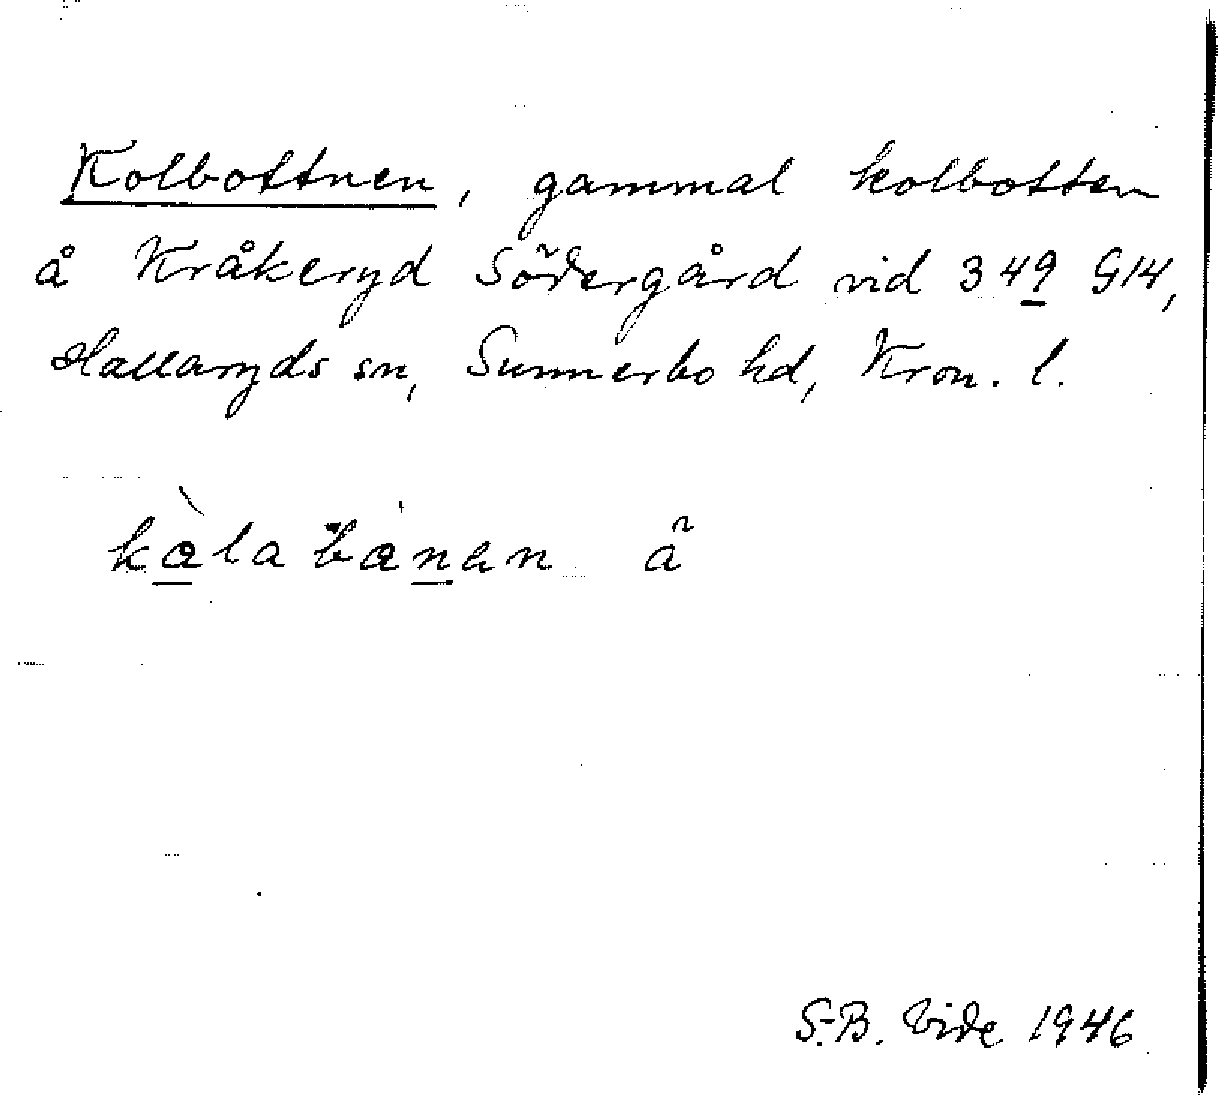 Kolbottnen, gammal kolbotten
å Kråkeryd Södergård vid 349 G14,
Hallaryds sn, Sunnerbo hd, Kron. l.
kàlabánen å
S.-B. Vide 1946